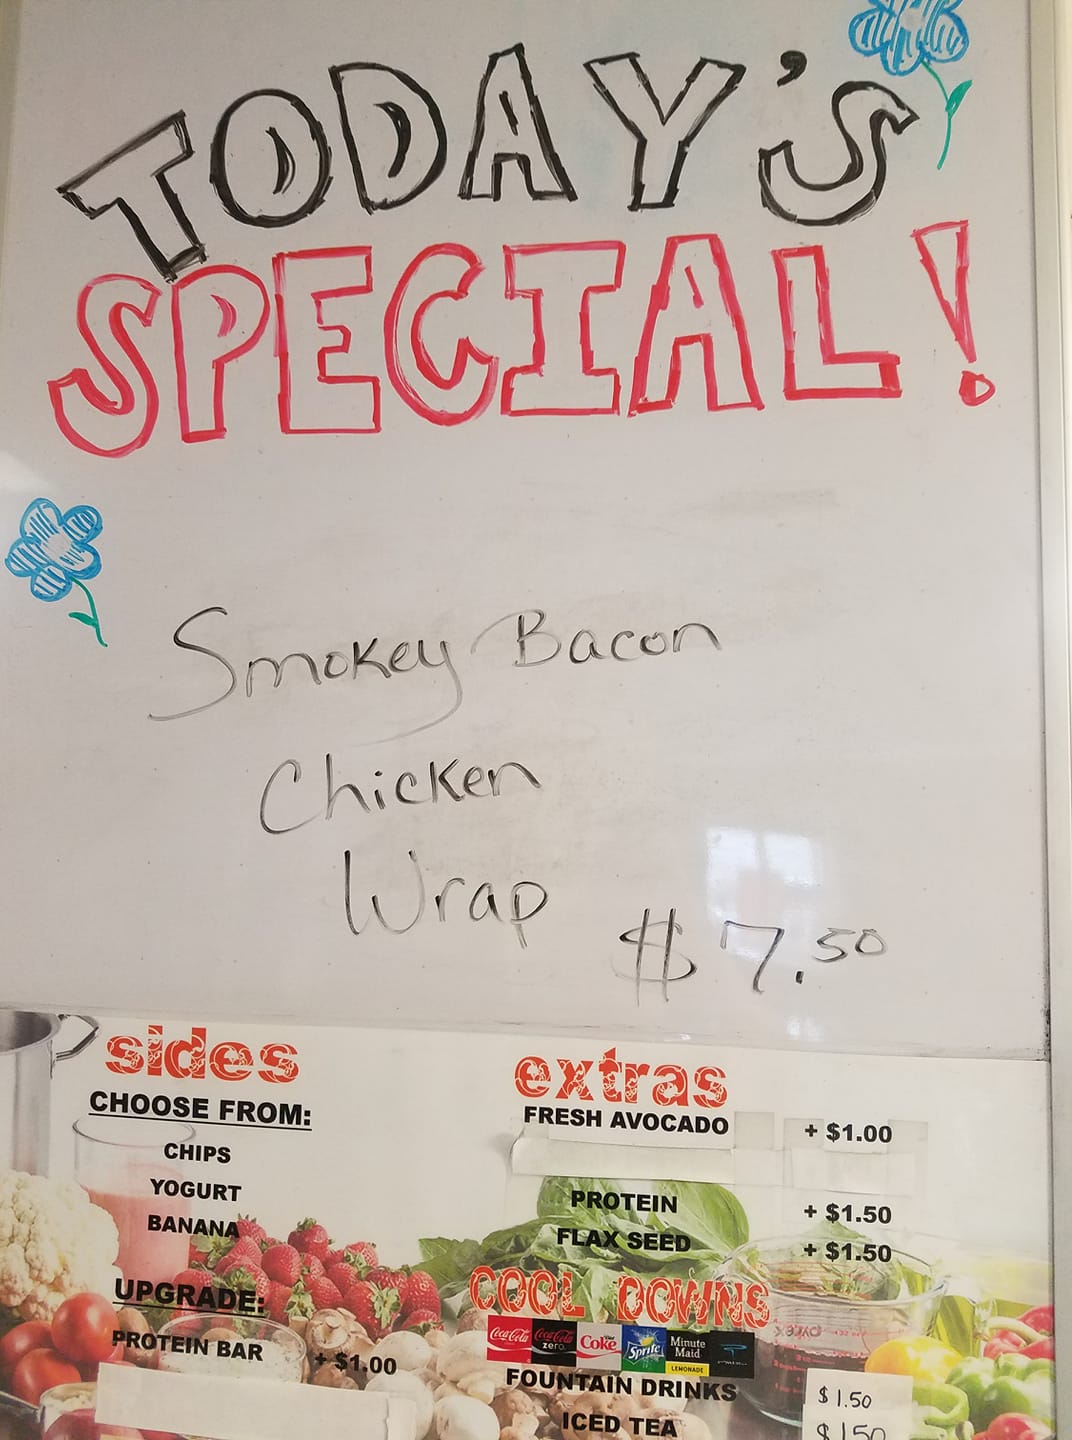 TODAY'S
SPECIAL!
Smokey Bacon
Chicken
Wrap
$7.50
sides
CHOOSE FROM:
CHIPS
YOGURT
BANANA
UPGRADE:
PROTEIN BAR + $1.00
extras
FRESH AVOCADO + $1.00
PROTEIN + $1.50
FLAX SEED + $1.50
COOL DOWNS
Coca-Cola Coca-Cola zero Diet Coke Sprite Minute Maid LEMONADE
FOUNTAIN DRINKS $1.50
ICED TEA $1.50
PYREX